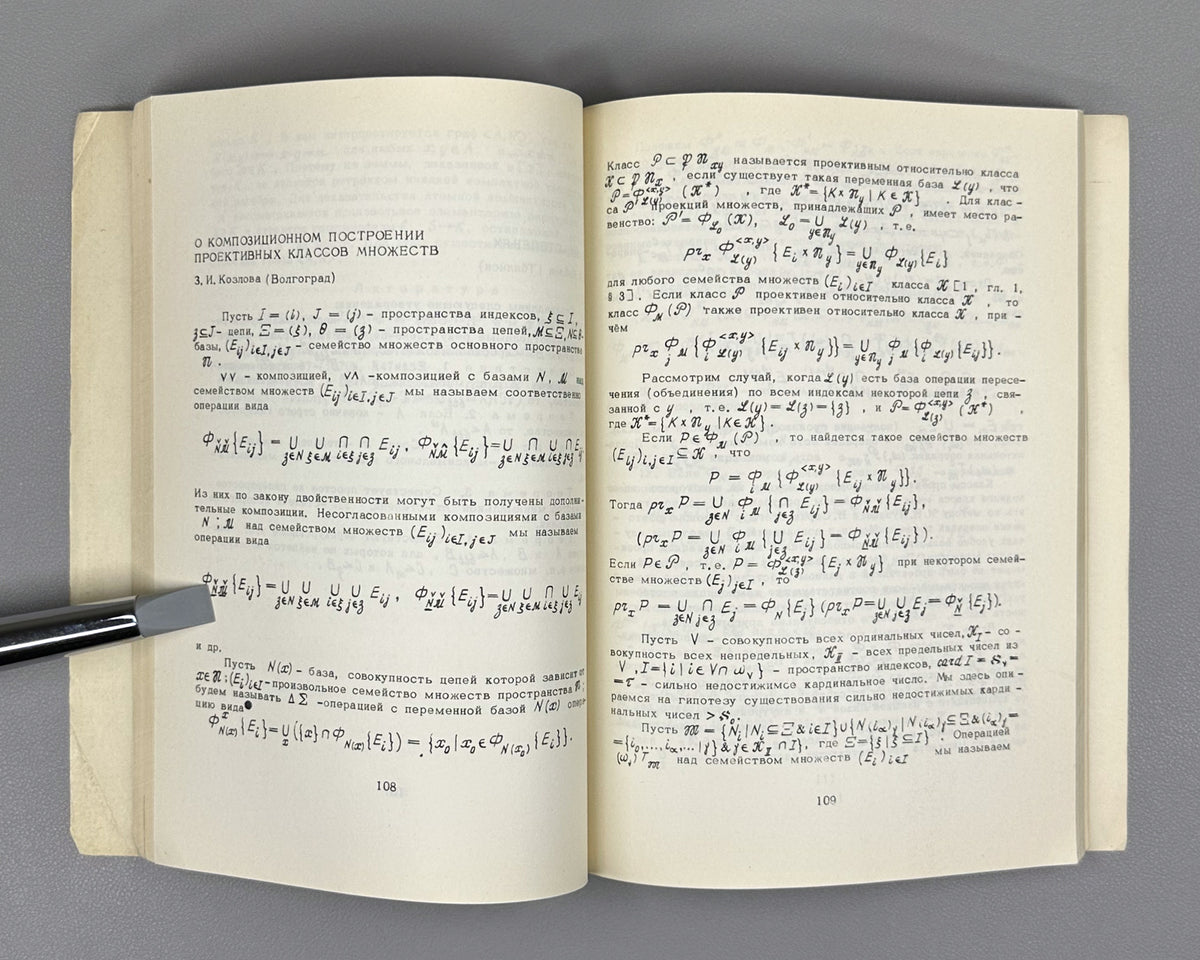 О КОМПОЗИЦИОННОМ ПОСТРОЕНИИ
ПРОЕКТИВНЫХ КЛАССОВ МНОЖЕСТВ
З.И. Козлова (Волгоград)
Пусть I = (i), J = (j) - пространства индексов, ξ ⊆ I,
ʒ ⊆ J - цепи, Ξ = (ξ), θ = (ʒ) - пространства цепей, M ⊆ Ξ, N ⊆ θ-
базы, (E_{ij})_{i∈I, j∈J} - семейство множеств основного пространства
𝔑.
∨∨ - композицией, ∨∧ - композицией с базами N, M над
семейством множеств (E_{ij})_{i∈I, j∈J} мы называем соответственно
операции вида
Φ_{N̆M̆}{E_{ij}} = ∪_{ʒ∈N} ∪_{ξ∈M} ∩_{i∈ξ} ∩_{j∈ʒ} E_{ij}, Φ_{N̆M̂}{E_{ij}} = ∪_{ʒ∈N} ∩_{ξ∈M} ∪_{i∈ξ} ∩_{j∈ʒ} E_{ij}
Из них по закону двойственности могут быть получены дополни-
тельные композиции. Несогласованными композициями с базами
N, M над семейством множеств (E_{ij})_{i∈I, j∈J} мы называем
операции вида
{E_{ij}} = ∪_{ʒ∈N} ∪_{ξ∈M} ∪_{i∈ξ} ∪_{j∈ʒ} E_{ij}, {E_{ij}} = ∪_{ʒ∈N} ∪_{ξ∈M} ∩_{i∈ξ} ∪_{j∈ʒ} E_{ij}
и др.
Пусть N(x) - база, совокупность цепей которой зависит от
x ∈ 𝔑; (E_i)_{i∈I} - произвольное семейство множеств пространства 𝔑;
будем называть ΔΣ -операцией с переменной базой N(x) опера-
цию вида
Φ^x_{N(x)}{E_i} = ∪_x ({x} ∩ Φ_{N(x)}{E_i}) = {x_0 | x_0 ∈ Φ_{N(x_0)}{E_i}}.
108
Класс 𝒫 ⊂ 𝔓𝔑_{xy} называется проективным относительно класса
𝒦 ⊂ 𝔓𝔑_x, если существует такая переменная база ℒ(y), что
𝒫 = Φ^{<x,y>}_{ℒ(y)}(𝒦*), где 𝒦* = {K × 𝔑_y | K ∈ 𝒦}. Для клас-
са 𝒫' проекций множеств, принадлежащих 𝒫, имеет место ра-
венство: 𝒫' = Φ_{ℒ_0}(𝒦), ℒ_0 = ∪_{y∈𝔑_y} ℒ(y), т.е.
pr_x Φ^{<x,y>}_{ℒ(y)}{E_i × 𝔑_y} = ∪_{y∈𝔑_y} Φ_{ℒ(y)}{E_i}
для любого семейства множеств (E_i)_{i∈I} класса 𝒦 [1, гл. 1,
§ 3]. Если класс 𝒫 проективен относительно класса 𝒦, то
класс Φ_M(𝒫) также проективен относительно класса 𝒦, при -
чём
pr_x Φ_{j M}{Φ^{<x,y>}_{i ℒ(y)}{E_{ij} × 𝔑_y}} = ∪_{y∈𝔑_y} Φ_{j M}{Φ_{i ℒ(y)}{E_{ij}}}.
Рассмотрим случай, когда ℒ(y) есть база операции пересе-
чения (объединения) по всем индексам некоторой цепи ʒ, свя-
занной с y, т.е. ℒ(y) = ℒ(ʒ) = {ʒ}, и 𝒫 = Φ^{<x,y>}_{ℒ(ʒ)}(𝒦*),
где 𝒦* = {K × 𝔑_y | K ∈ 𝒦}.
Если P ∈ Φ_M(𝒫), то найдется такое семейство множеств
(E_{ij})_{i,j∈I} ⊆ 𝒦, что
P = Φ_{i M}{Φ^{<x,y>}_{ℒ(y)}{E_{ij} × 𝔑_y}}.
Тогда pr_x P = ∪_{ʒ∈N} Φ_{i M}{∩_{j∈ʒ} E_{ij}} = Φ_{N̆M̆}{E_{ij}},
(pr_x P = ∪_{ʒ∈N} Φ_{i M}{∪_{j∈ʒ} E_{ij}} = Φ_{N̲̆M̆}{E_{ij}}).
Если P ∈ 𝒫, т.е. P = Φ^{<x,y>}_{ℒ(ʒ)}{E_j × 𝔑_y} при некотором семей-
стве множеств (E_j)_{j∈I}, то
pr_x P = ∪_{ʒ∈N} ∩_{j∈ʒ} E_j = Φ_N{E_j} (pr_x P = ∪_{ʒ∈N} ∪_{j∈ʒ} E_j = Φ_{N̲̆}{E_j}).
Пусть V - совокупность всех ординальных чисел, 𝒦_I - со-
вокупность всех непредельных, 𝒦_{II} - всех предельных чисел из
V, I = {i | i ∈ V ∩ ω_ν} - пространство индексов, card I = ℵ_ν =
= τ - сильно недостижимое кардинальное число. Мы здесь опи-
раемся на гипотезу существования сильно недостижимых карди -
нальных чисел > ℵ_0.
Пусть 𝔐 = {N_i | N_i ⊆ Ξ & i∈I} ∪ {N_{(i_α)_γ} | N_{(i_α)_γ} ⊆ Ξ & (i_α)_γ =
= {i_0,..., i_α,... | γ} & γ ∈ 𝒦_{II} ∩ I}, где Ξ = {ξ | ξ ⊆ I}. Операцией
(ω_ν) T_𝔐 над семейством множеств (E_i)_{i∈I} мы называем
109